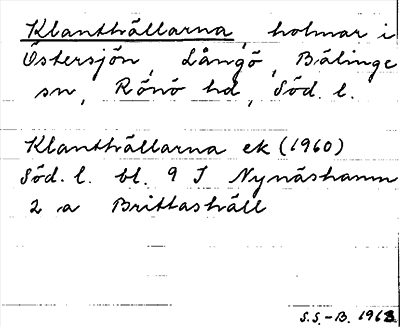 Klanthällarna, holmar i
Östersjön, Långö, Bälinge
sn, Rönö hd, Söd. l.
Klanthällarna ek (1960)
Söd. l. bl. 9 I Nynäshamn
2 a Brittashäll
S.S.-B. 1963